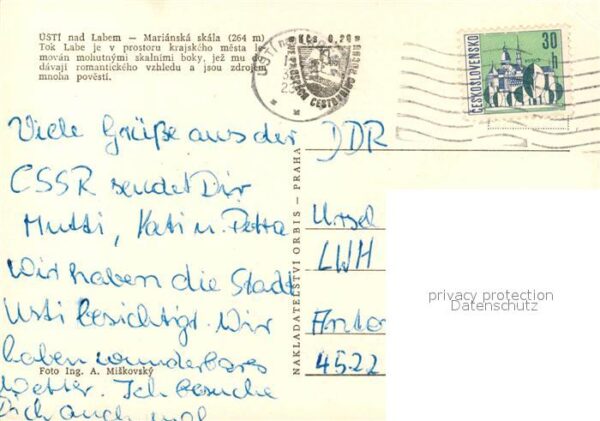 ÚSTÍ nad Labem — Mariánská skála (264 m)
Tok Labe je v prostoru krajského města
mován mohutnými skalními boky, jež mu do
dávají romantického vzhledu a jsou zdrojem
mnoha pověstí.
KČS 0,20
ČESKOSLOVENSKO
30 h
Viele Grüße aus der
CSSR sendet Dir
Mutti, Kati u. Petra
Wir haben die Stadt
Usti besichtigt. Wir
haben wunderbares
Wetter. Ich besuche
Dich auch mal
Foto Ing. A. Miškovský
NAKLADATELSTVÍ ORBIS — PRAHA
DDR
Ursel
LWH
Anto
4522
privacy protection
Datenschutz